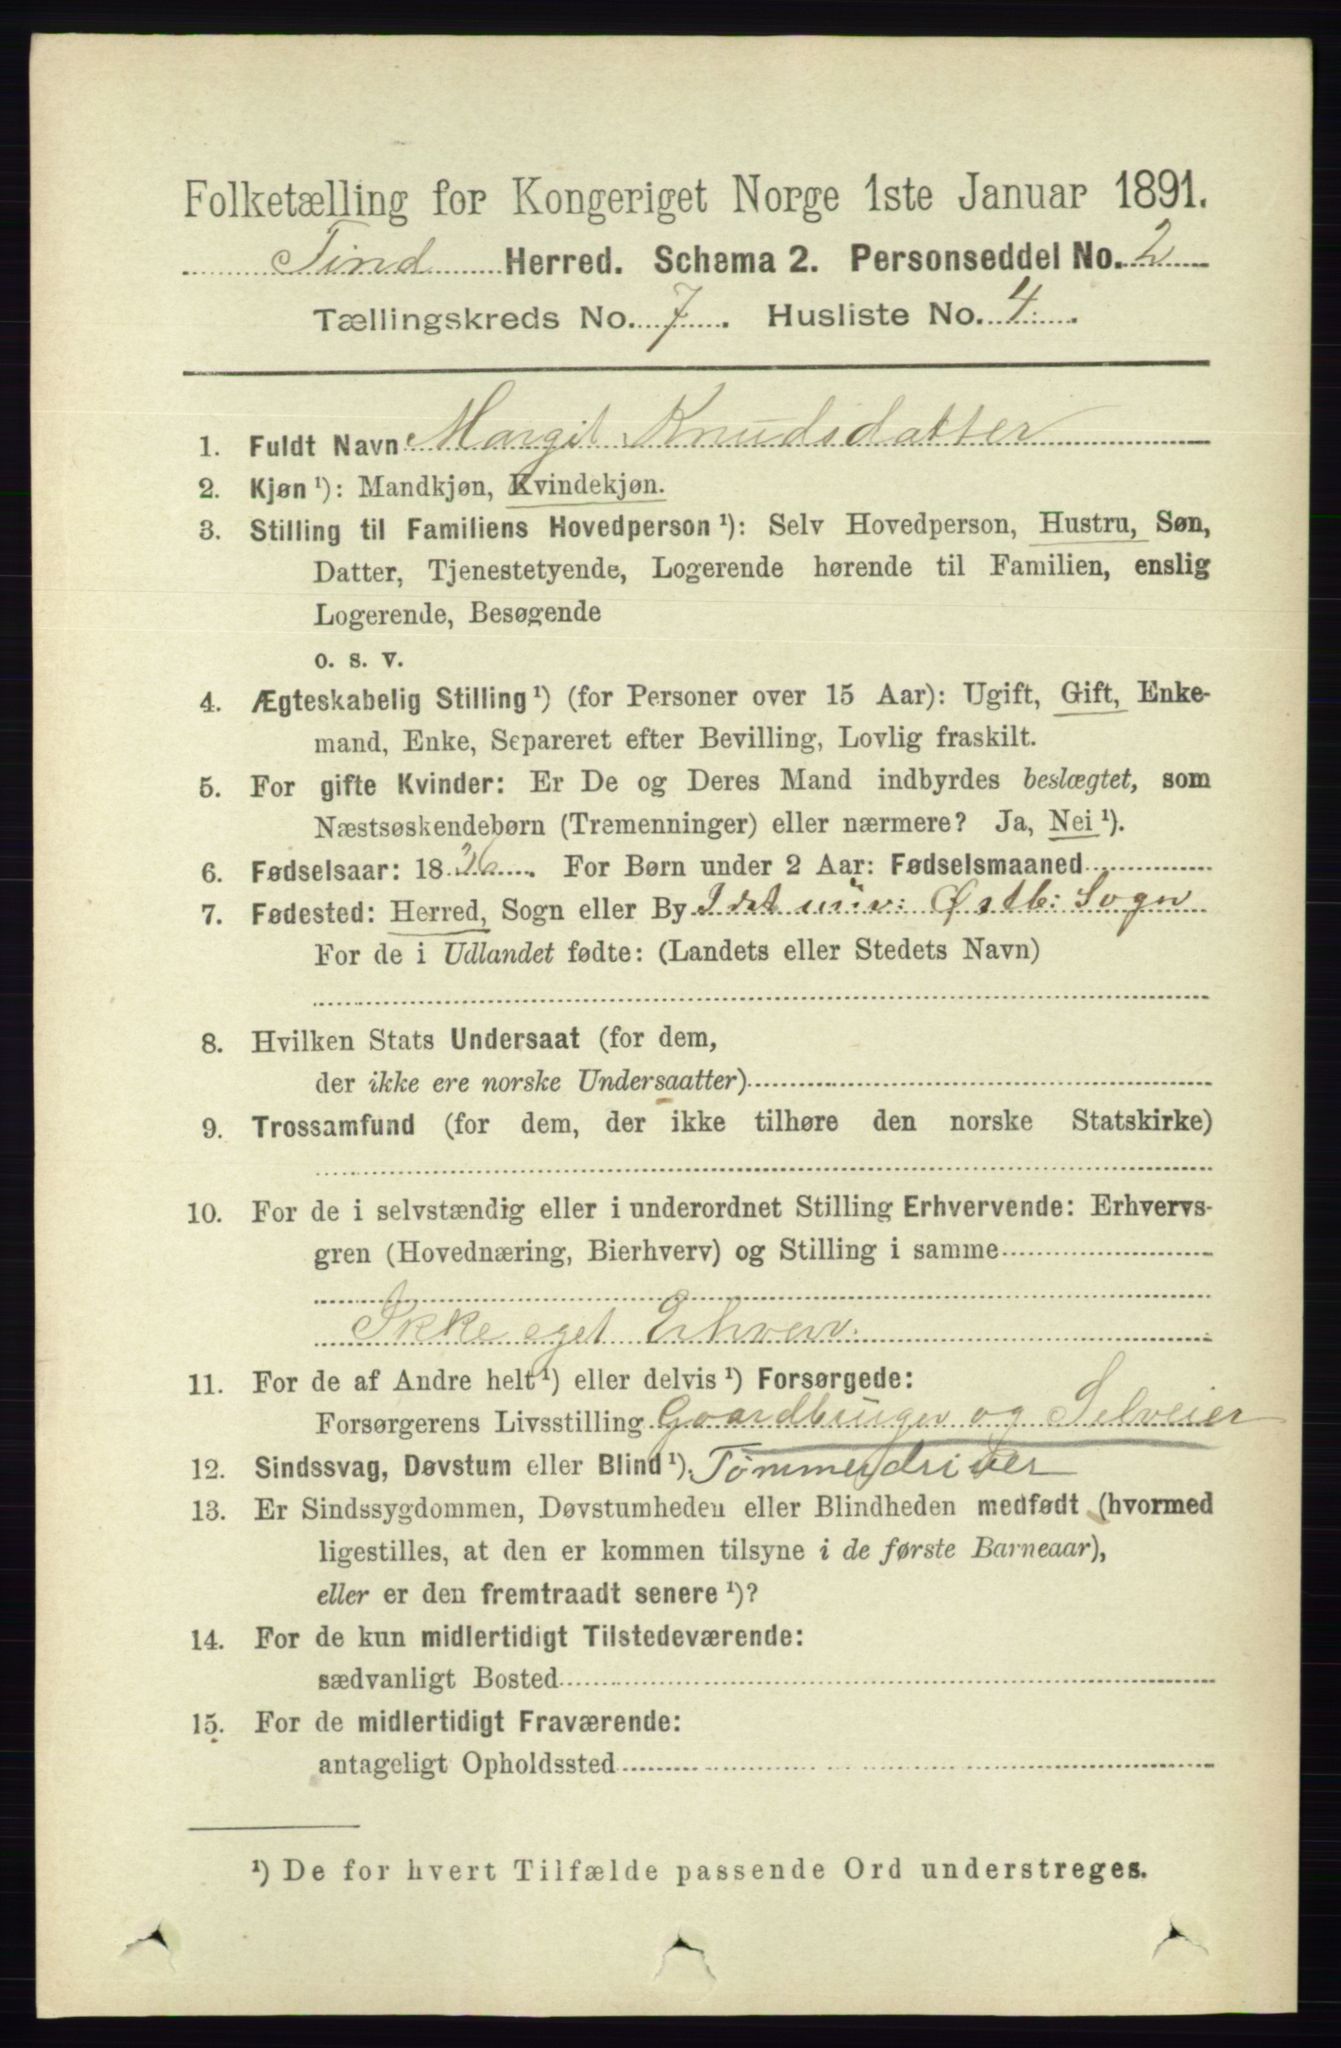 Folketælling for Kongeriget Norge 1ste Januar 1891.
Tind Herred. Schema 2. Personseddel No. 2
Tællingskreds No. 7. Husliste No. 4.
1. Fuldt Navn Margit Knudsdatter
2. Kjøn ¹): Mandkjøn, Kvindekjøn.
3. Stilling til Familiens Hovedperson ¹): Selv Hovedperson, Hustru, Søn,
Datter, Tjenestetyende, Logerende hørende til Familien, enslig
Logerende, Besøgende
o. s. v.
4. Ægteskabelig Stilling ¹) (for Personer over 15 Aar): Ugift, Gift, Enke-
mand, Enke, Separeret efter Bevilling, Lovlig fraskilt.
5. For gifte Kvinder: Er De og Deres Mand indbyrdes beslægtet, som
Næstsøskendebørn (Tremenninger) eller nærmere? Ja, Nei ¹).
6. Fødselsaar: 1836. For Børn under 2 Aar: Fødselsmaaned
7. Fødested: Herred, Sogn eller By I det Østb: Sogn
For de i Udlandet fødte: (Landets eller Stedets Navn)
8. Hvilken Stats Undersaat (for dem,
der ikke ere norske Undersaatter)
9. Trossamfund (for dem, der ikke tilhøre den norske Statskirke)
10. For de i selvstændig eller i underordnet Stilling Erhvervende: Erhvervs-
gren (Hovednæring, Bierhverv) og Stilling i samme
Ikke eget Erhverv.
11. For de af Andre helt ¹) eller delvis ¹) Forsørgede:
Forsørgerens Livsstilling Gaardbruger og Selveier
12. Sindssvag, Døvstum eller Blind ¹). Tømmerdriver
13. Er Sindssygdommen, Døvstumheden eller Blindheden medfødt (hvormed
ligestilles, at den er kommen tilsyne i de første Barneaar),
eller er den fremtraadt senere ¹)?
14. For de kun midlertidigt Tilstedeværende:
sædvanligt Bosted
15. For de midlertidigt Fraværende:
antageligt Opholdssted
¹) De for hvert Tilfælde passende Ord understreges.